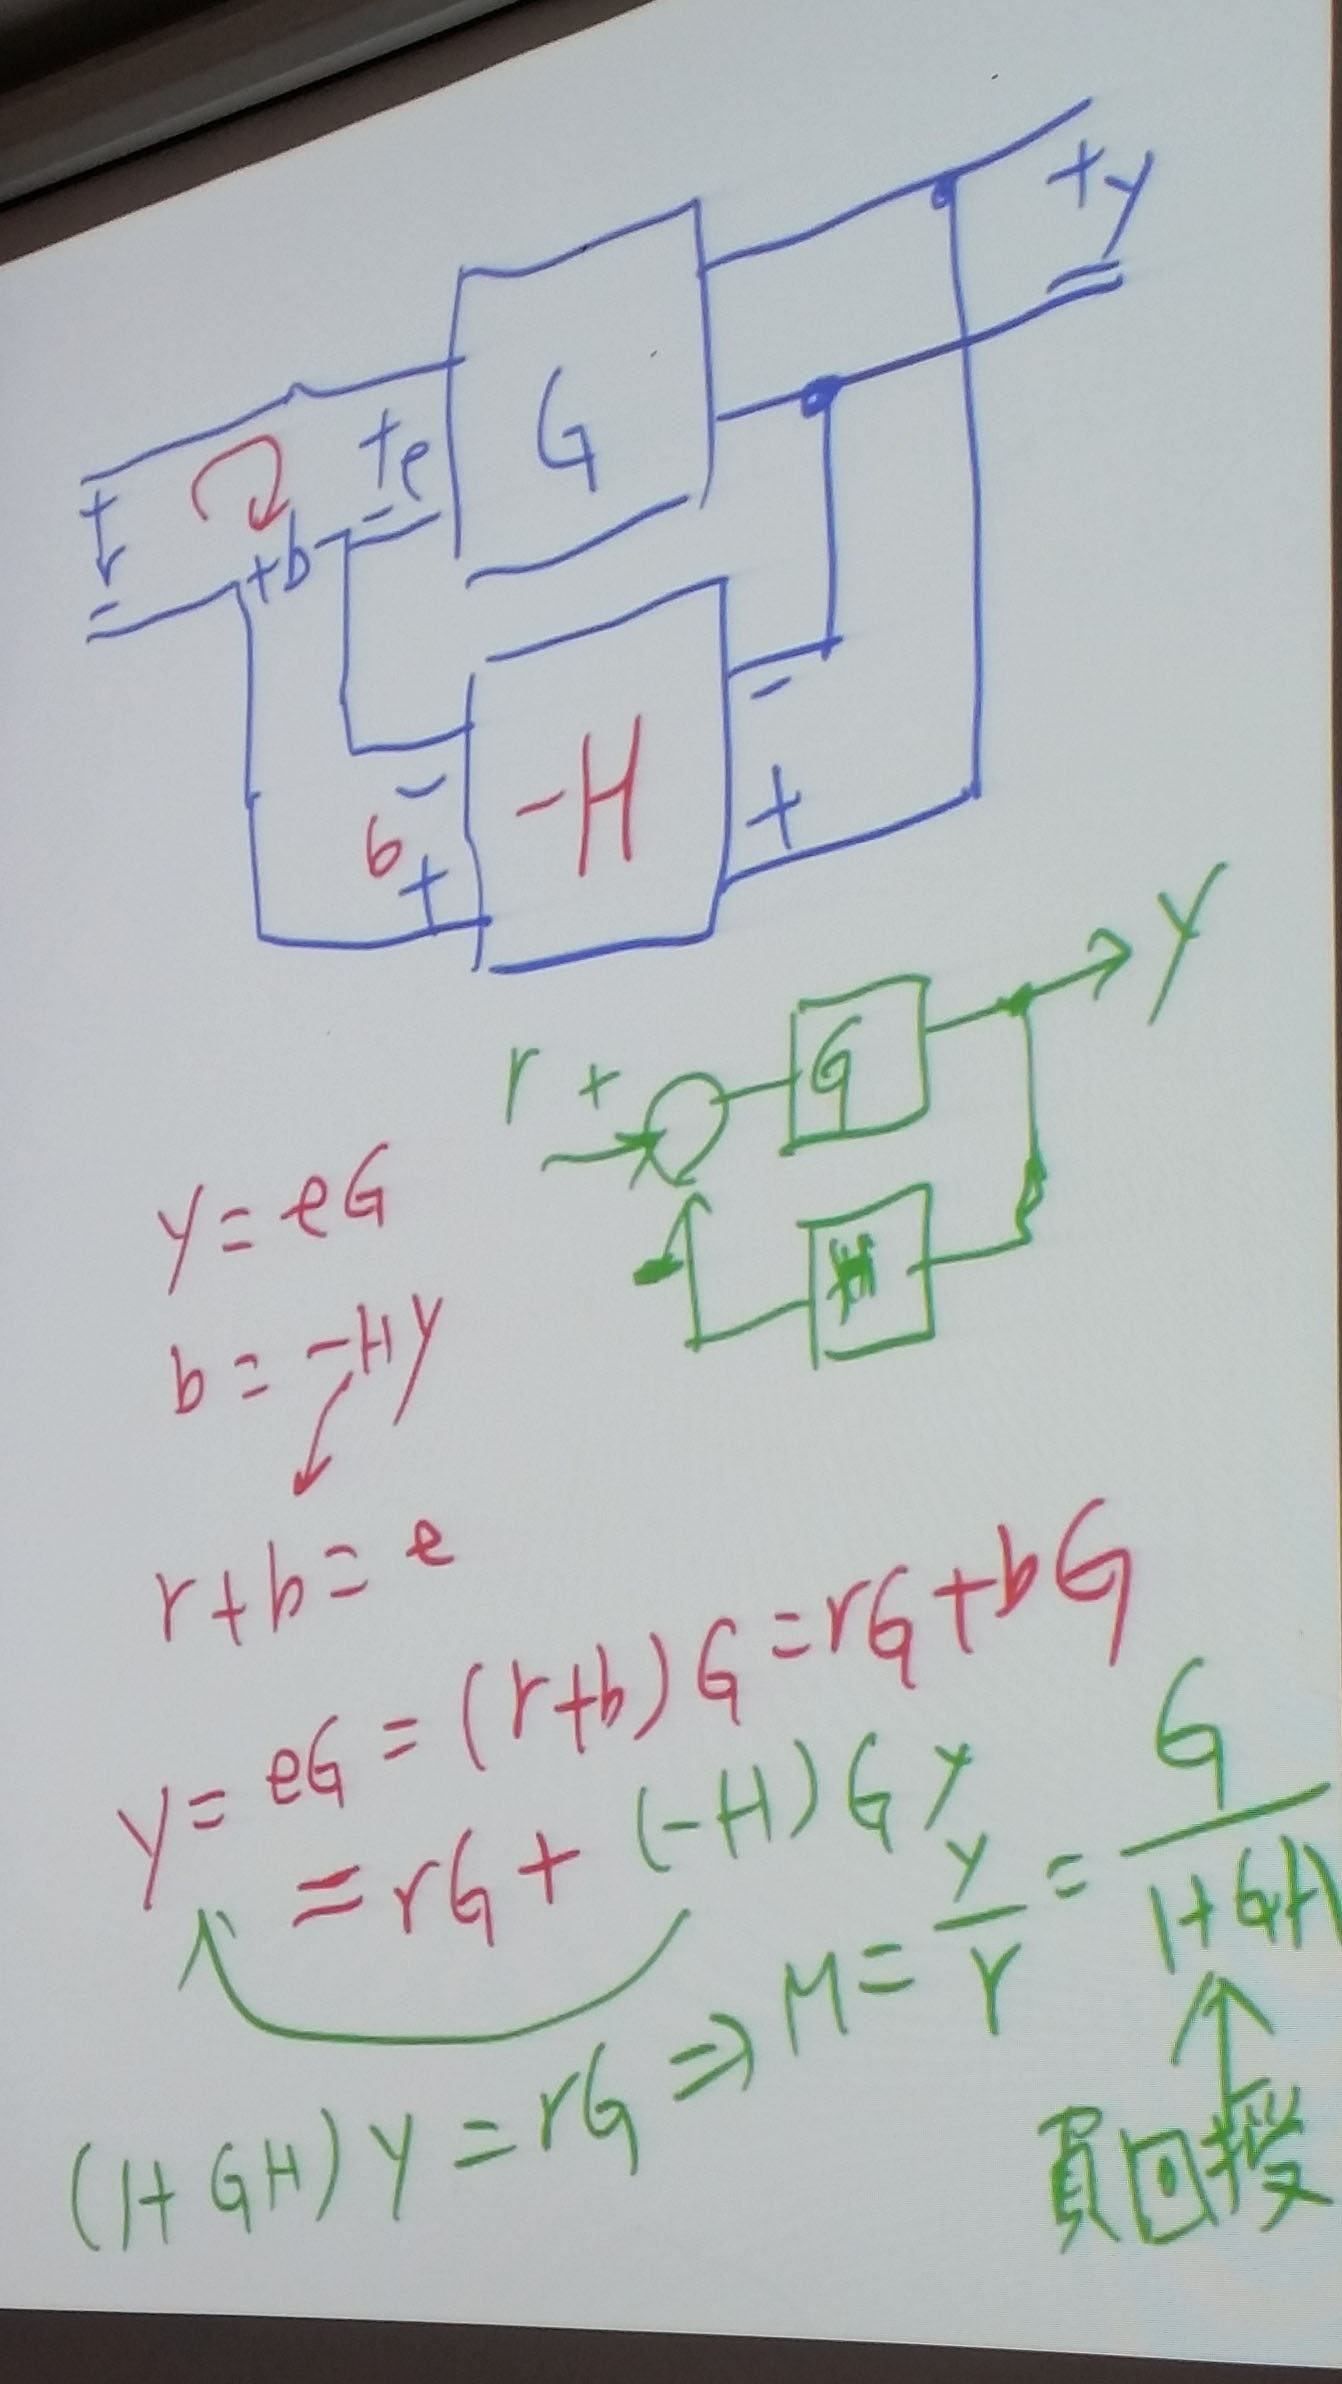 +
y
=
+
e
-
G
+
r
-
+b-
-
b
+
-H
-
+
r +
G
y
-
H
y = eG
b = -Hy
r+b = e
y = eG = (r+b)G = rG+bG
= rG + (-H)Gy
(1+GH)y = rG ⇒ M = y/r = G/(1+GH)
負回授